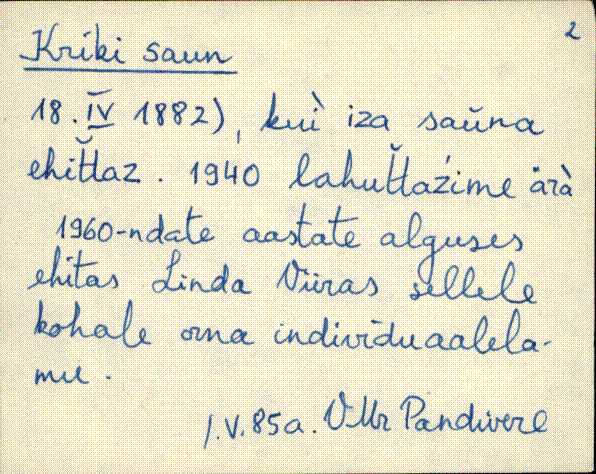 2
Kriki saun
18. IV 1882), kuì iza saŭna
ehit̆taz. 1940 lahut̆taźime ärà
1960-ndate aastate alguses
ehitas Linda Viiras sellele
kohale oma individuaalela-
mu.
1.V.85a. VMr Pandivere